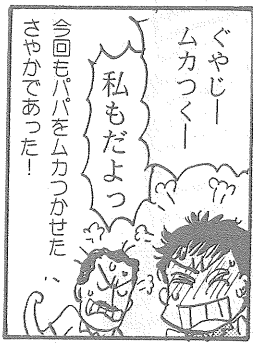 ぐやじー
ムカつくー
私もだよっ
今回もパパをムカつかせた
さやかであった！